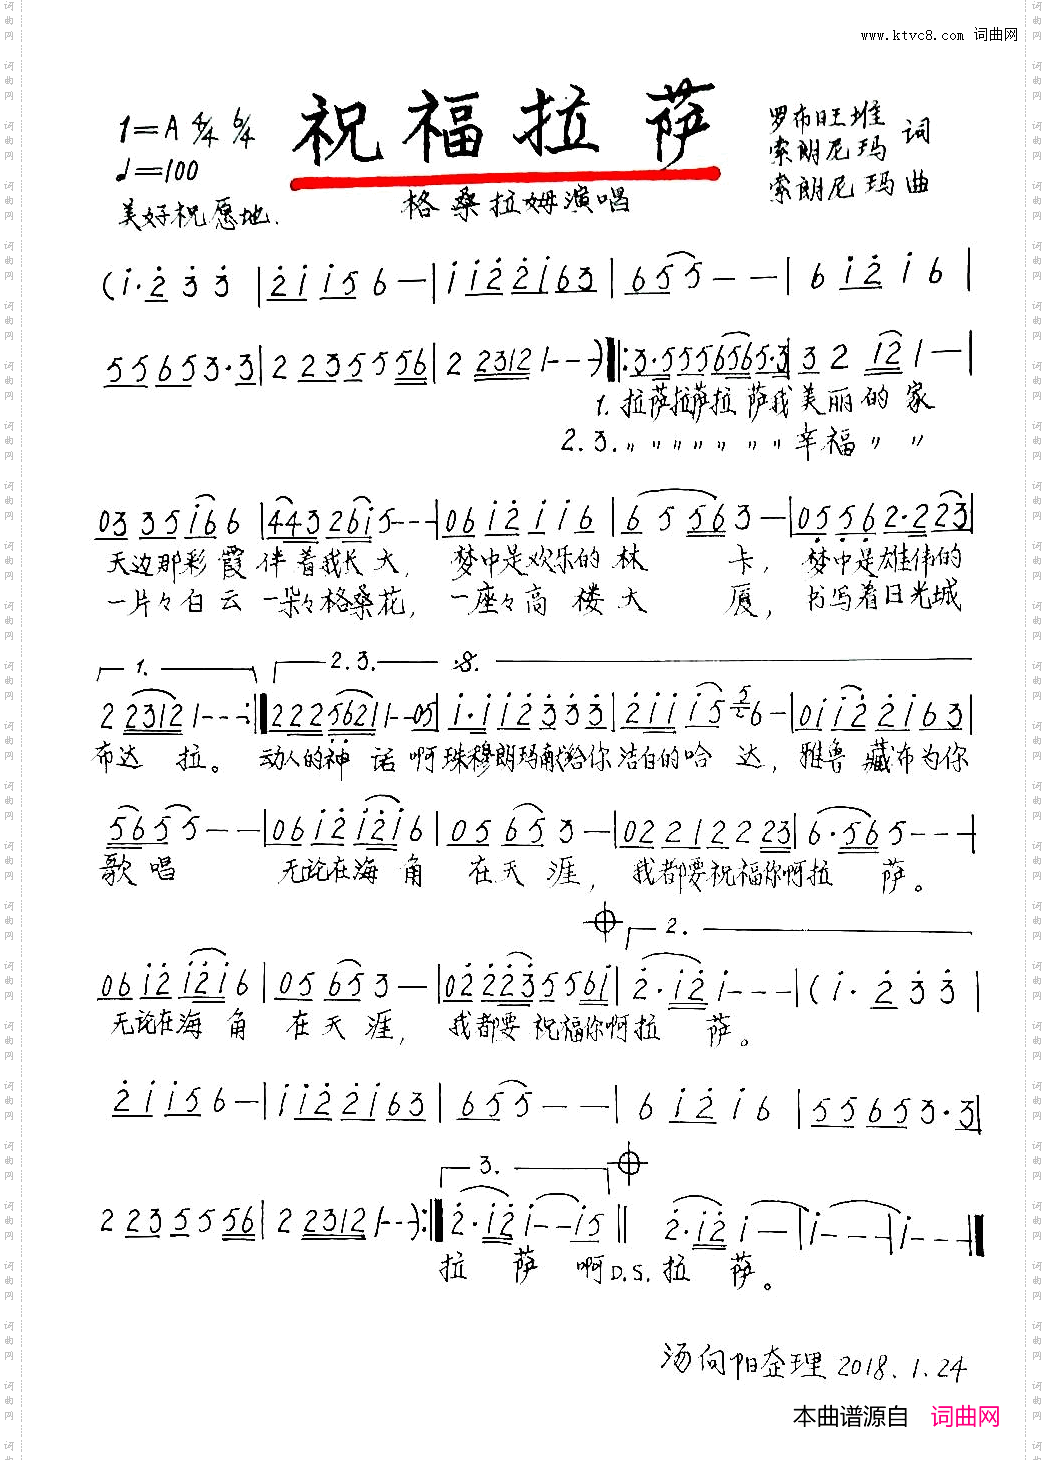 www.ktvc8.com 词曲网
祝福拉萨
1=A 4/4 6/4
♩=100
美好祝愿地.
格桑拉姆演唱
罗布旺堆
索朗尼玛 词
索朗尼玛 曲
(i·2 3 3 | 2 i i 5 6 — | i i 2 2 i 6 3 | 6 5 5 — — | 6 i 2 i 6 |
5 5 6 5 3·3 | 2 2 3 5 5 5 6 | 2 2312 1 - - - ) ‖: 3·5 5 5 6 5 6 5·3 | 3 2 12 1 — |
1. 拉萨拉萨拉 萨我美丽的 家
2.3. 〃〃〃〃〃〃〃幸福〃 〃
03 3 5 i 6 6 | 4 4 3 2 6 i 5 - - - | 06 i 2 i i 6 | 6 5 56 3 — | 05 5 6 2·2 2 3 |
天边那彩霞 伴着我长大, 梦中是欢乐的林 卡, 梦中是雄伟的
一片々白云 一朵々格桑花, 一座々高楼大 厦, 书写着日光城
1. 2.3. 𝄋.
2 2312 1 - - - :‖ 2 2 2 5 6 2 1 1 - - 05 | i·i i 2 3 3 3 | 2 i i i 5 6 — | 0 i i 2 2 i 6 3 |
布达 拉。 动人的神 话 啊 珠穆朗玛献给你洁白的哈 达, 雅鲁 藏布为你
5 6 5 5 — — | 06 i 2 i 2 i 6 | 05 6 5 3 — | 02 2 1 2 2 2 3 | 6·5 6 5 - - - |
歌 唱 无论在海 角 在天 涯, 我都要祝福你啊拉 萨。
2.
06 i 2 i 2 i 6 | 05 6 5 3 — | 02 2 2 3 5 5 6 i | 2·i 2 i - - - | (i· 2 3 3 |
无论在海 角 在天 涯, 我都要 祝福你啊拉 萨。
2 i i 5 6 — | i i 2 2 i 6 3 | 6 5 5 — — | 6 i 2 i 6 | 5 5 6 5 3·3 |
3.
2 2 3 5 5 5 6 | 2 2312 1 - - - ) :‖ 2·i 2 i - - i 5 ‖ 2·i 2 i — | i - - - | i - - - ‖
拉 萨 啊 D.S. 拉 萨。
汤向阳整理 2018.1.24
本曲谱源自 词曲网